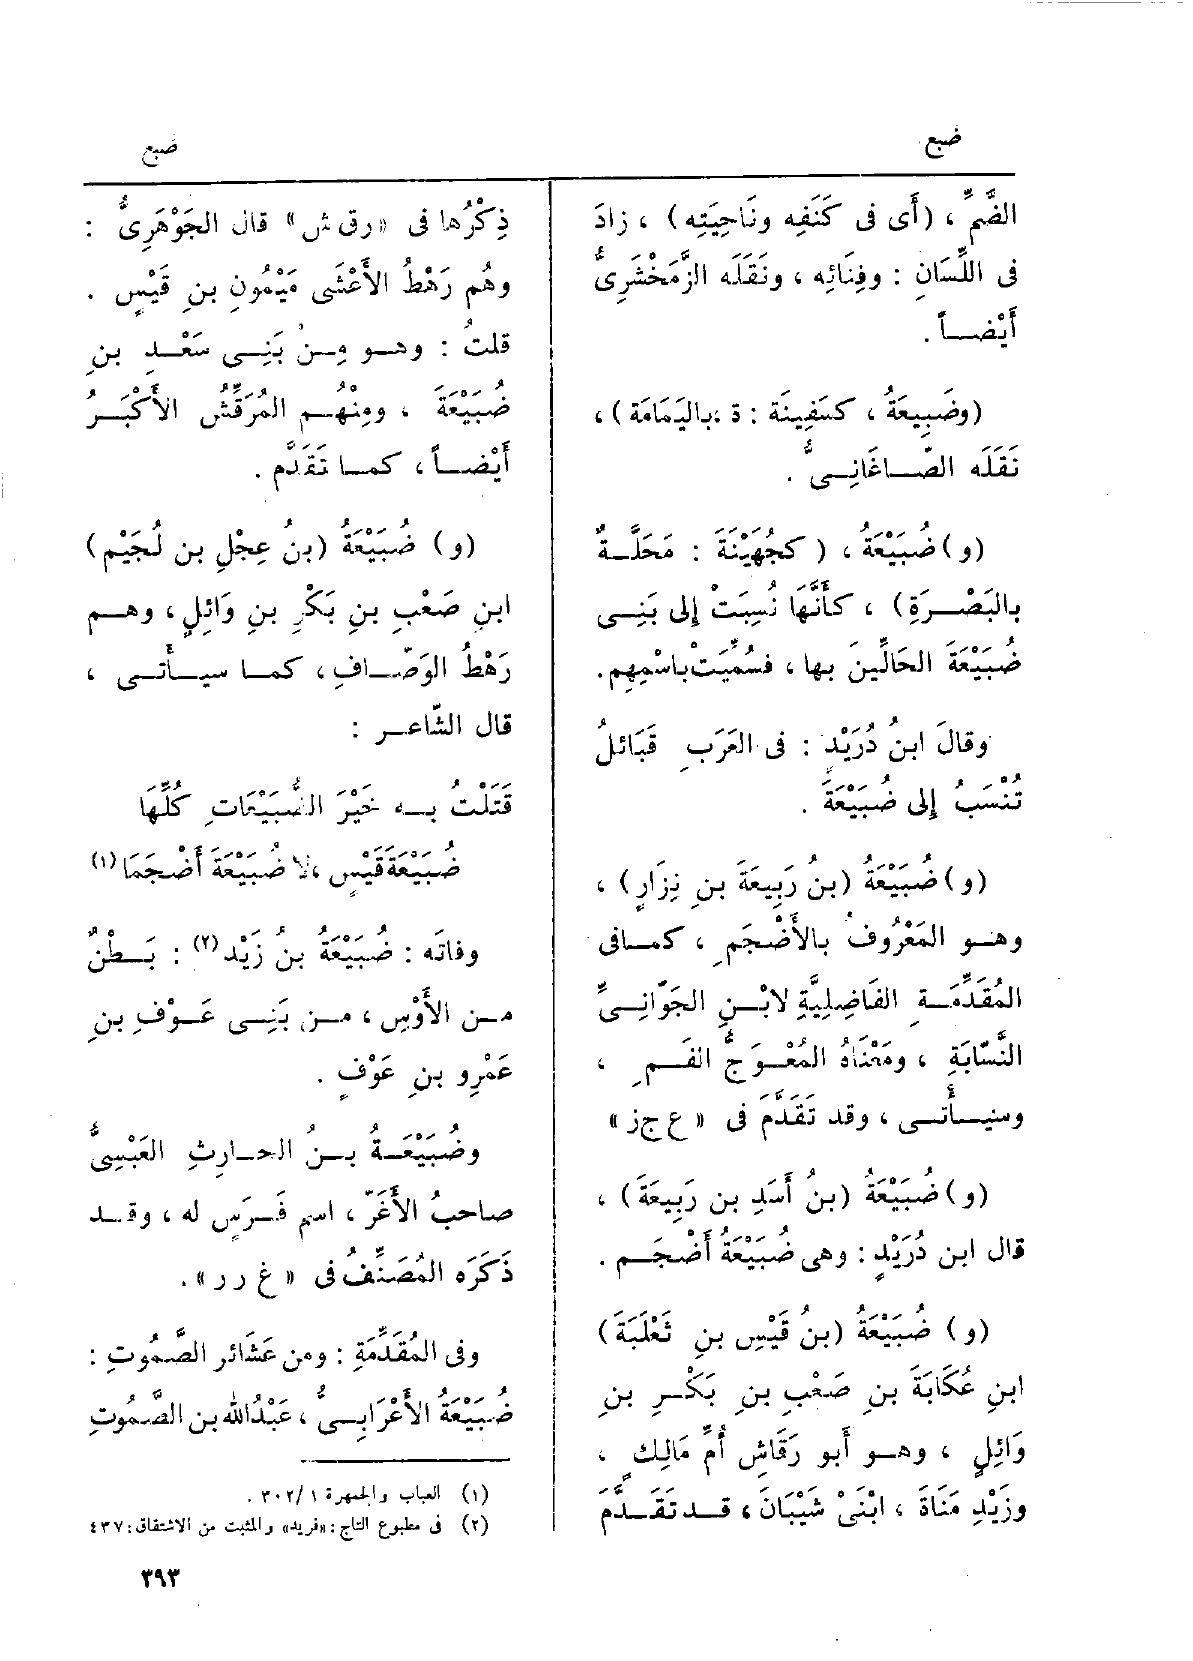 ضبع
ضبع
الضَّمِّ ، (أَى فى كَنَفِه ونَاحِيَتِه) ، زادَ
فى اللِّسَانِ : وفِنَائِه ، ونَقَلَه الزَّمَخْشَرِىُّ
أَيْضــاً .
(وضَبِيعَةُ ، كسَفِينَة : ة ، بالـيَمَامَة) ،
نَقَلَه الصّــاغَانِــىُّ .
(و) ضُبَيْعَةُ ، (كجُهَيْنَة : مَحَلَّــةٌ
بالبَصْــرَةِ) ، كأَنَّهَا نُسِبَتْ إِلى بَنِــى
ضُبَيْعَةَ الحَالِّينَ بها ، فسُمِّيَتْ باسْمِهِم.
وقالَ ابنُ دُرَيْدٍ : فى العَرَبِ قَبَائلُ
تُنْسَبُ إِلى ضُبَيْعَةَ .
(و) ضُبَيْعَةُ (بنُ رَبِيعَةَ بنِ نِزارٍ) ،
وهــو المَعْرُوفُ بالأَضْجَمِ ، كمــافى
المُقَدِّمَــةِ الفَاضِلِيَّةِ لابْــنِ الجَوّانِــىِّ
النَّسّابَةِ ، ومَعْنَاهُ المُعْــوَجُّ الفَــمِ ،
وسيــأْتــى ، وقد تَقَدَّمَ فى « ع ج ز »
(و) ضُبَيْعَةُ (بنُ أَسَدِ بن رَبِيعَةَ) ،
قال ابن دُرَيْدٍ : وهى ضُبَيْعَةُ أَضْجَــم .
(و) ضُبَيْعَةُ (بنُ قَيْسِ بنِ ثَعْلَبَةَ)
ابنِ عُكَابَةَ بنِ صَعْبِ بنِ بَكْــرِ بنِ
وَائِلٍ ، وهــو أَبو رَقَاشِ أُمِّ مَالِكٍ ،
وزَيْدِ مَنَاةَ ، ابْنَىْ شَيْبَانَ ، قــد تَقَــدَّمَ
ذِكْرُها فى « رق ش » قال الجَوْهَرِىُّ :
وهُم رَهْطُ الأَعْشَى مَيْمُونِ بنِ قَيْسٍ .
قلتُ : وهــو مِــنْ بَنِــى سَعْــدِ بنِ
ضُبَيْعَةَ ، ومِنْهُــم المُرَقِّشُ الأَكْبَــرُ
أَيْضــاً ، كمــا تَقَدَّم .
(و) ضُبَيْعَةُ (بنُ عِجْلِ بن لُجَيْم)
ابنِ صَعْبِ بنِ بَكْرِ بنِ وَائِلٍ ، وهــم
رَهْطُ الوَصّــافِ ، كمــا سيــأْتــى ،
قال الشّاعــر :
قَتَلْتُ بــه خَيْرَ الضُّبَيْعَاتِ كُلِّهَا
ضُبَيْعَةَ قَيْسٍ ، لا ضُبَيْعَةَ أَضْجَمَا (١)
وفاتَه : ضُبَيْعَةُ بنُ زَيْد (٢) : بَــطْنٌ
مــن الأَوْسِ ، مــن بَنِــى عَــوْفِ بنِ
عَمْرِو بنِ عَوْفٍ .
وضُبَيْعَــةُ بــنُ الحــارِثِ العَبْسِىُّ
صاحبُ الأَغَرّ ، اسم فَــرَسٍ له ، وقــد
ذَكَرَه المُصَنِّفُ فى « غ ر ر » .
وفى المُقَدِّمَةِ : ومن عَشَائر الصَّمُوتِ :
ضُبَيْعَةُ الأَعْرَابِــىُّ ، عَبْدُالله بن الصَّمُوتِ
(١) العباب والجمهرة ٣٠٢/١ .
(٢) فى مطبوع التاج : «فريد» والمثبت من الاشتقاق : ٤٣٧
٣٩٣